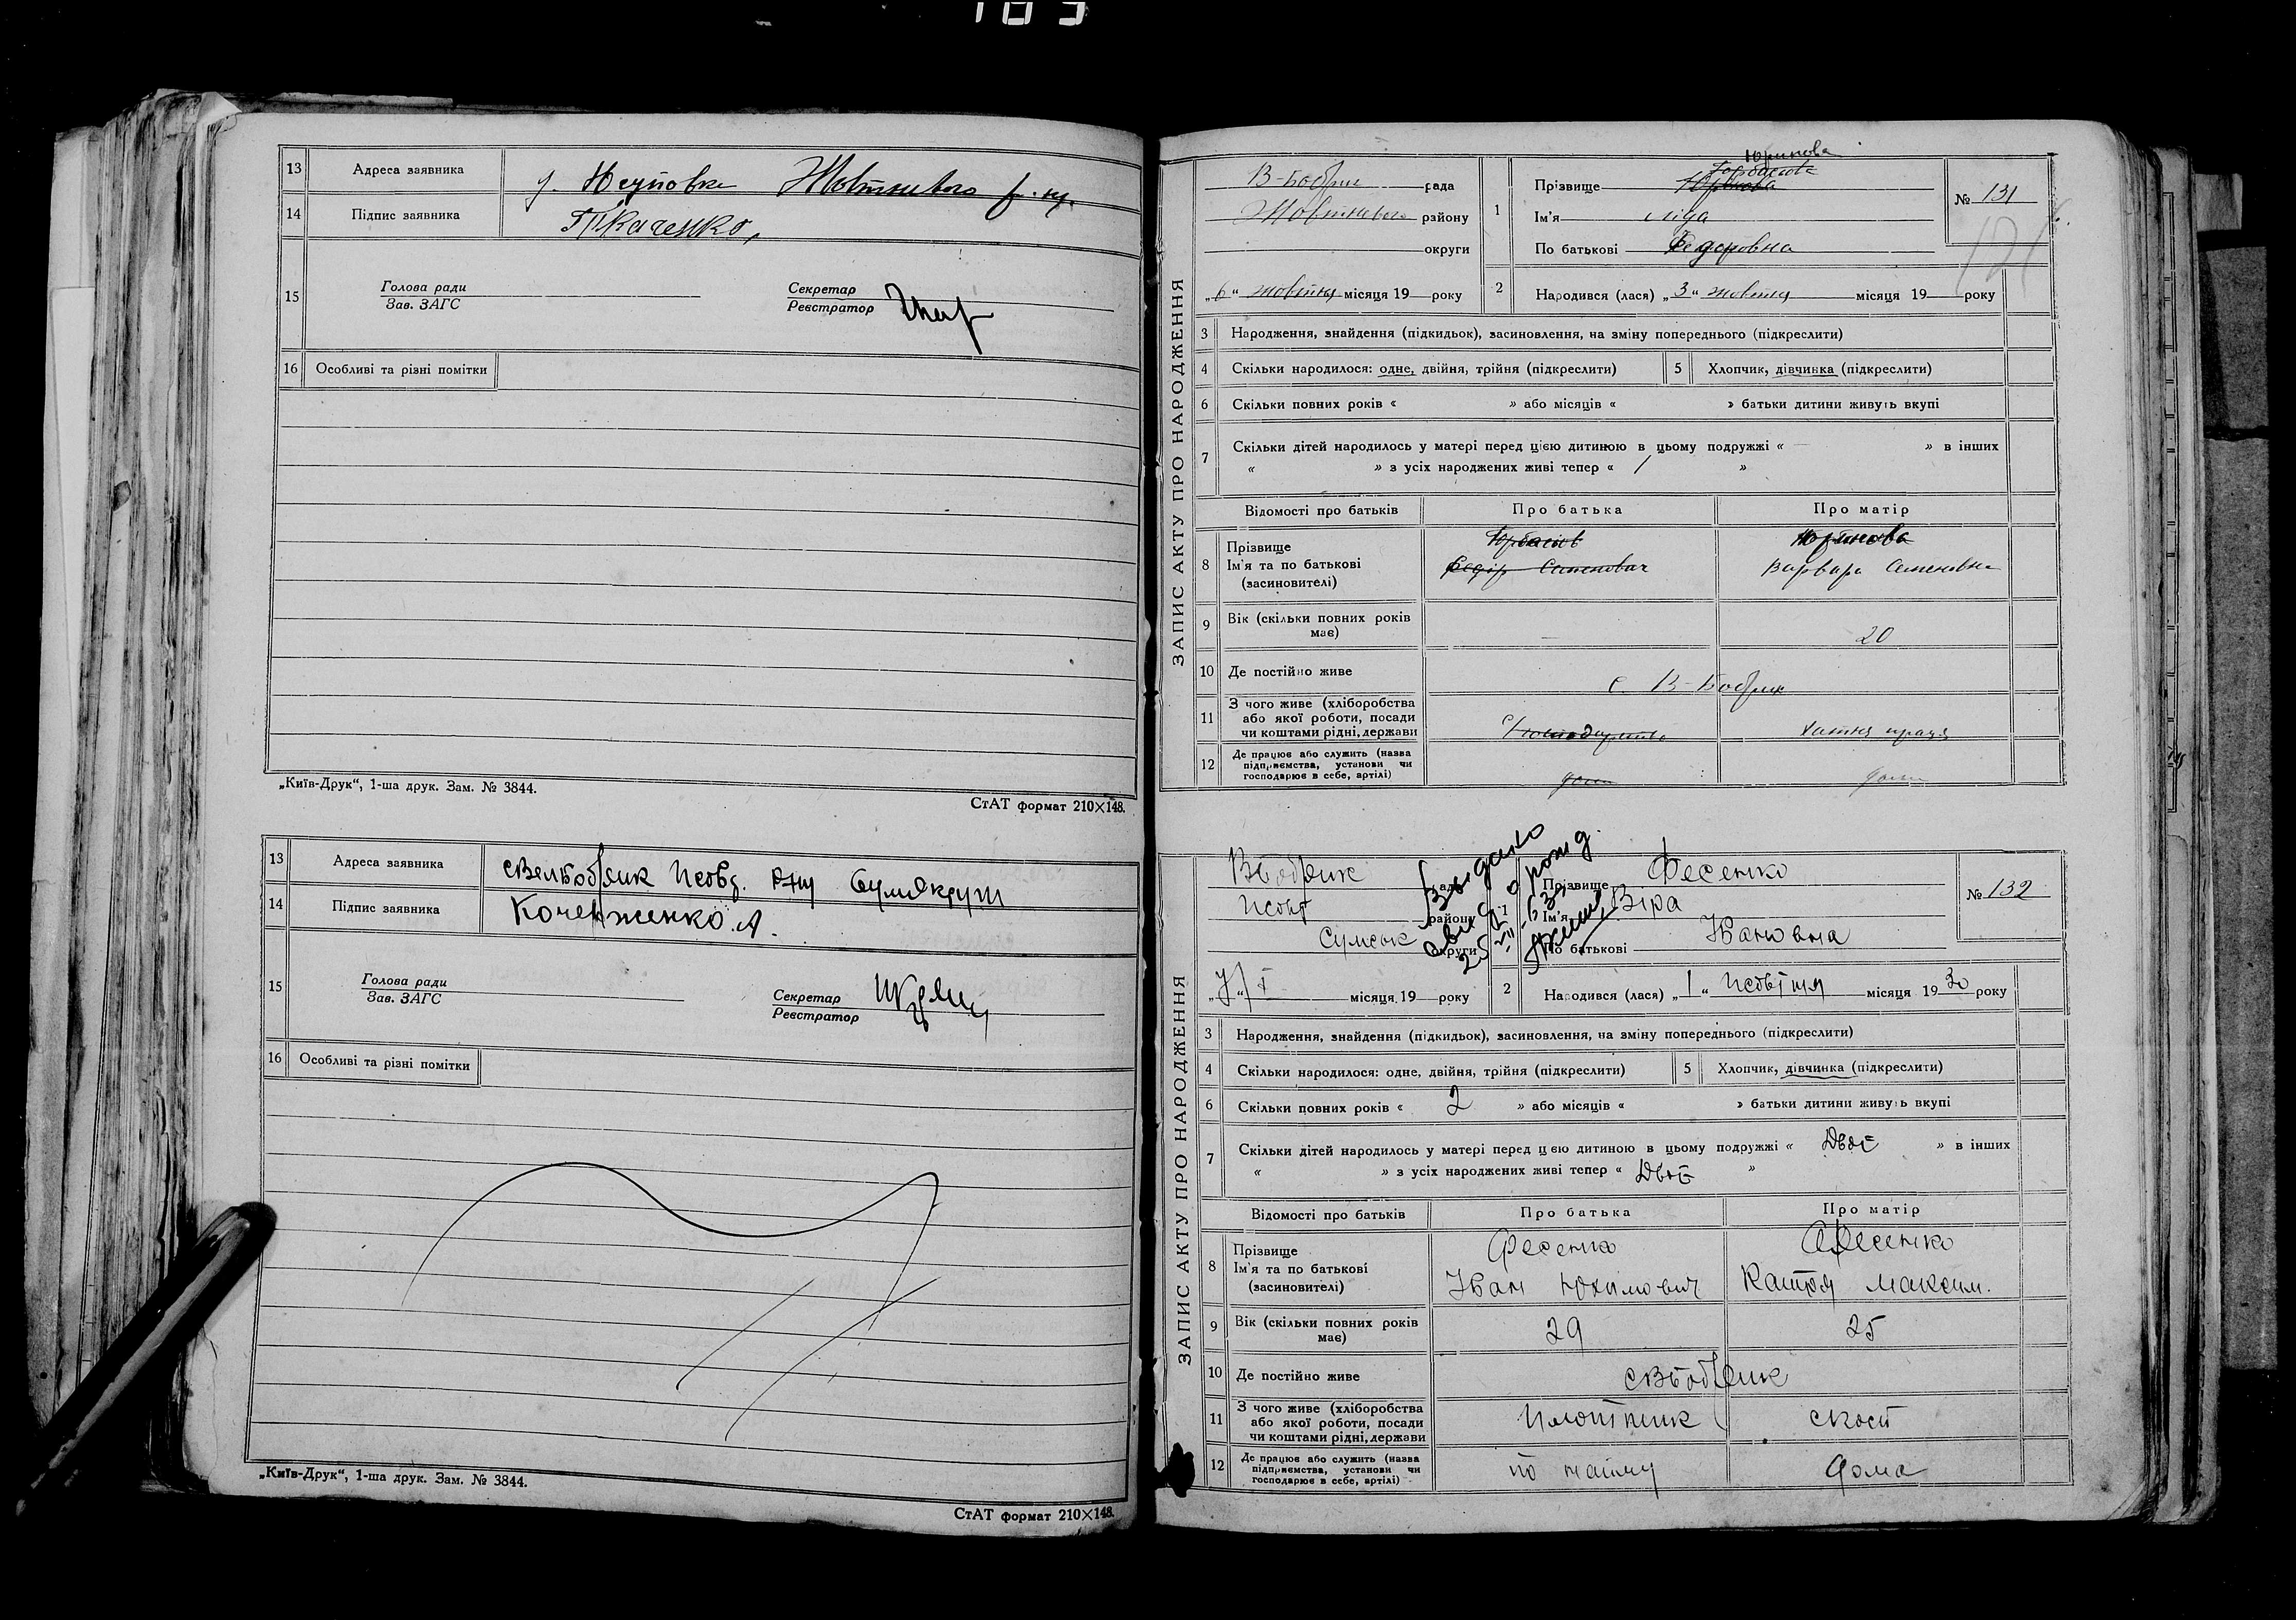 183
13 Адреса заявника Жовтневого р-ну.
14 Підпис заявника Ткаченко
15 Голова ради Зав. ЗАГС Секретар Реєстратор
16 Особливі та різні помітки
„Київ-Друк“, 1-ша друк. Зам. № 3844.
СтАТ формат 210×148.
13 Адреса заявника
14 Підпис заявника
15 Голова ради Зав. ЗАГС Секретар Реєстратор
16 Особливі та різні помітки
„Київ-Друк“, 1-ша друк. Зам. № 3844.
СтАТ формат 210×148.
ЗАПИС АКТУ ПРО НАРОДЖЕННЯ
В-Бобрик рада
Жовтневого району
округи
„6“ жовтня місяця 19 року
1 Прізвище
Ім'я Ліда
По батькові Федоровна
№ 131
2 Народився (лася) „3“ жовтня місяця 19 року
3 Народження, знайдення (підкидьок), засиновлення, на зміну попереднього (підкреслити)
4 Скільки народилося: одне, двійня, трійня (підкреслити) 5 Хлопчик, дівчинка (підкреслити)
6 Скільки повних років « » або місяців « » батьки дитини живуть вкупі
7 Скільки дітей народилось у матері перед цією дитиною в цьому подружжі « — » в інших
« » з усіх народжених живі тепер « 1 »
Відомості про батьків Про батька Про матір
8 Прізвище
Ім'я та по батькові Федір Семенович Варвара Семеновна
(засиновителі)
9 Вік (скільки повних років має) — 20
10 Де постійно живе с. В-Бобрик
11 З чого живе (хліборобства або якої роботи, посади чи коштами рідні, держави хатня праця
12 Де працює або служить (назва підприємства, установи чи господарює в себе, артілі) дома дома
ЗАПИС АКТУ ПРО НАРОДЖЕННЯ
ВБобрик рада
району
округи
місяця 19 року
1 Прізвище Фесенко
Ім'я Віра
По батькові Івановна
№ 132
2 Народився (лася) „1“ місяця 1930 року
3 Народження, знайдення (підкидьок), засиновлення, на зміну попереднього (підкреслити)
4 Скільки народилося: одне, двійня, трійня (підкреслити) 5 Хлопчик, дівчинка (підкреслити)
6 Скільки повних років « 2 » або місяців « » батьки дитини живуть вкупі
7 Скільки дітей народилось у матері перед цією дитиною в цьому подружжі « Двоє » в інших
« » з усіх народжених живі тепер « Двоє »
Відомості про батьків Про батька Про матір
8 Прізвище Фесенко Фесенко
Ім'я та по батькові Іван Юхимович Катря Максим.
(засиновителі)
9 Вік (скільки повних років має) 29 25
10 Де постійно живе с ВБобрик
11 З чого живе (хліборобства або якої роботи, посади чи коштами рідні, держави Плотник
12 Де працює або служить (назва підприємства, установи чи господарює в себе, артілі) по найму дома